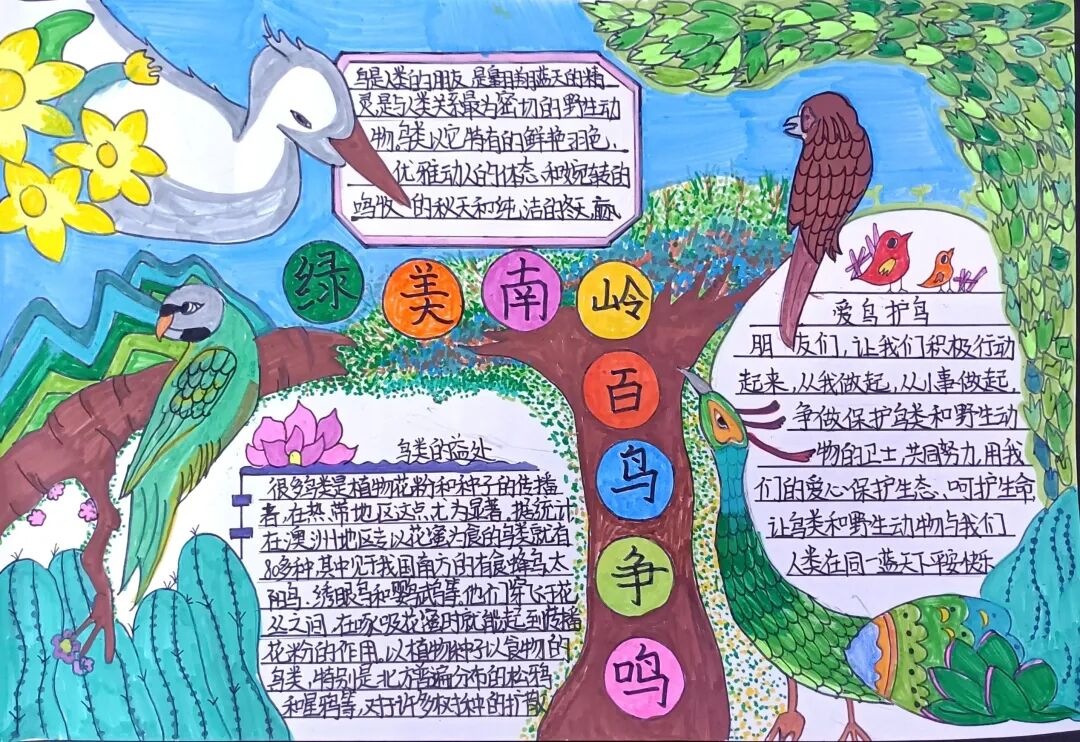 鸟是人类的朋友,是翱翔蓝天的精
灵是与人类关系最为密切的野生动
物,鸟类以它特有的鲜艳羽色、
优雅动人的体态、和婉转的
鸣
的秋天和纯洁的冬天
绿美南岭
百鸟争鸣
爱鸟护鸟
朋友们,让我们积极行动
起来,从我做起,从小事做起,
争做保护鸟类和野生动
物的卫士,共同努力,用我
们的爱心保护生态、呵护生命,
让鸟类和野生动物与我们
人类在同一蓝天下平安快乐
鸟类的益处
很多鸟类是植物花粉和种子的传播
者,在热带地区这点尤为显著,据统计
在澳洲地区专以花蜜为食的鸟类就有
80多种,其中见于我国南方的有食蜂鸟太
阳鸟、绣眼鸟和鹦鹉等,他们穿飞于花
丛之间,在吸花蜜时底能起到传播
花粉的作用,以植物种子以食物的
鸟类,特别是北方普遍分布的松鸦
和星鸦等,对于许多树种的扩散